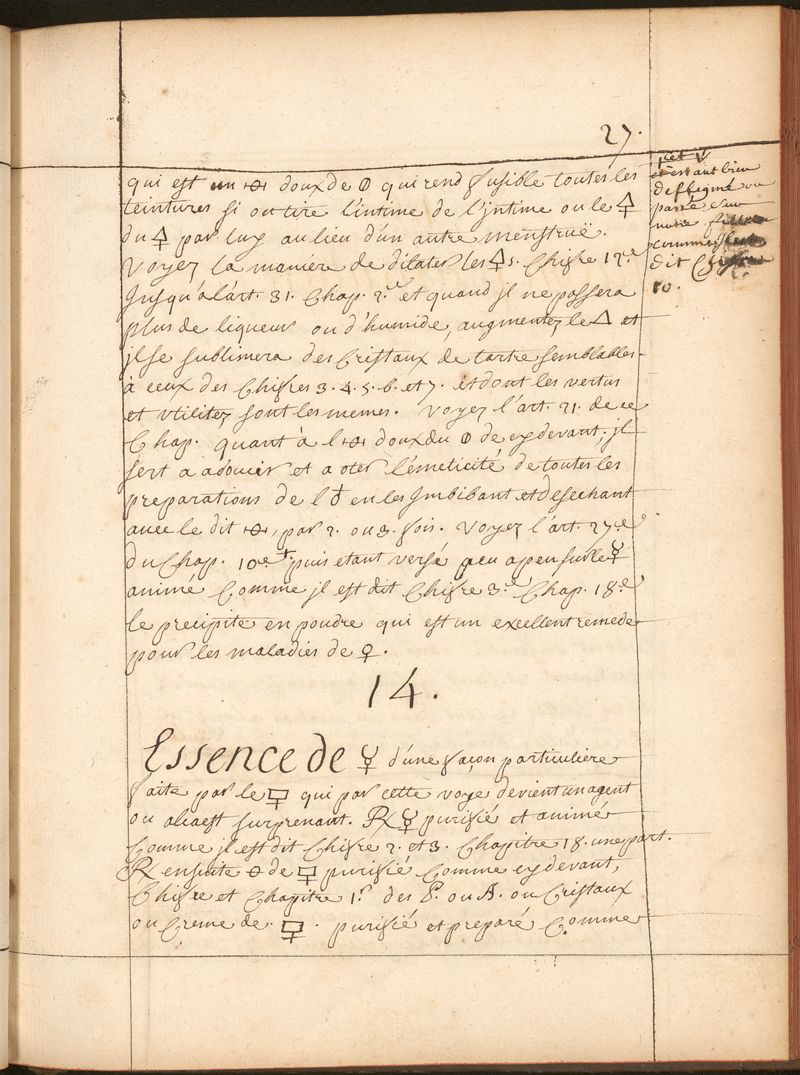 27.
qui est un ·🜹· doux de 🜕 qui rend fusible toutes les
teintures si on tire l'intime de l'jntime ou le 🜍
du 🜍 par luy au lieu d'un autre menstruë.
Voyez la maniere de dilater les 🜍s. Chifre 12.e
Jusqu'a l'art. 31. Chap. 2.e et quand jl ne passera
plus de liqueur ou d'humide, augmentez le 🜂 et
jl se sublimera des Cristaux de tartre semblables
à ceux des Chifres 3. 4. 5. 6. et 7. et dont les vertus
et vtilitez sont les memes. Voyez l'art. 21. de ce
Chap. quant à l'·🜹· doux du 🜕 de cy devant, jl
sert a adoucir et a oter l'émeticité de toutes les
preparations de l'♁ en les Jmbibant et desechant
avec le dit ·🜹·, par 2. ou 3. fois. Voyez l'art. 27.e
du Chap. 10e puis etant versé peu a peu sur le ☿
animé Comme jl est dit Chifre 3.e Chap. 18.e
le precipite en poudre qui est un excellent remede
pour les maladies de ♀.
14.
Essence de ☿ d'une façon particuliere
faite par le 🜿 qui par cette voye devient un agent
ou alcaest surprenant. ℞ ☿ purifié et animé
Comme jl est dit Chifre 2. et 3. Chapitre 18. une part.
℞ ensuite 🜔 de 🜿 purifié Comme cy devant,
Chifre et Chapitre 1.r des P. ou A. ou Cristaux
ou Creme de 🜿. purifié et preparé Comme
et est aut bien
deflegmé ou
passé
notre
comme
dit Chifre
10.